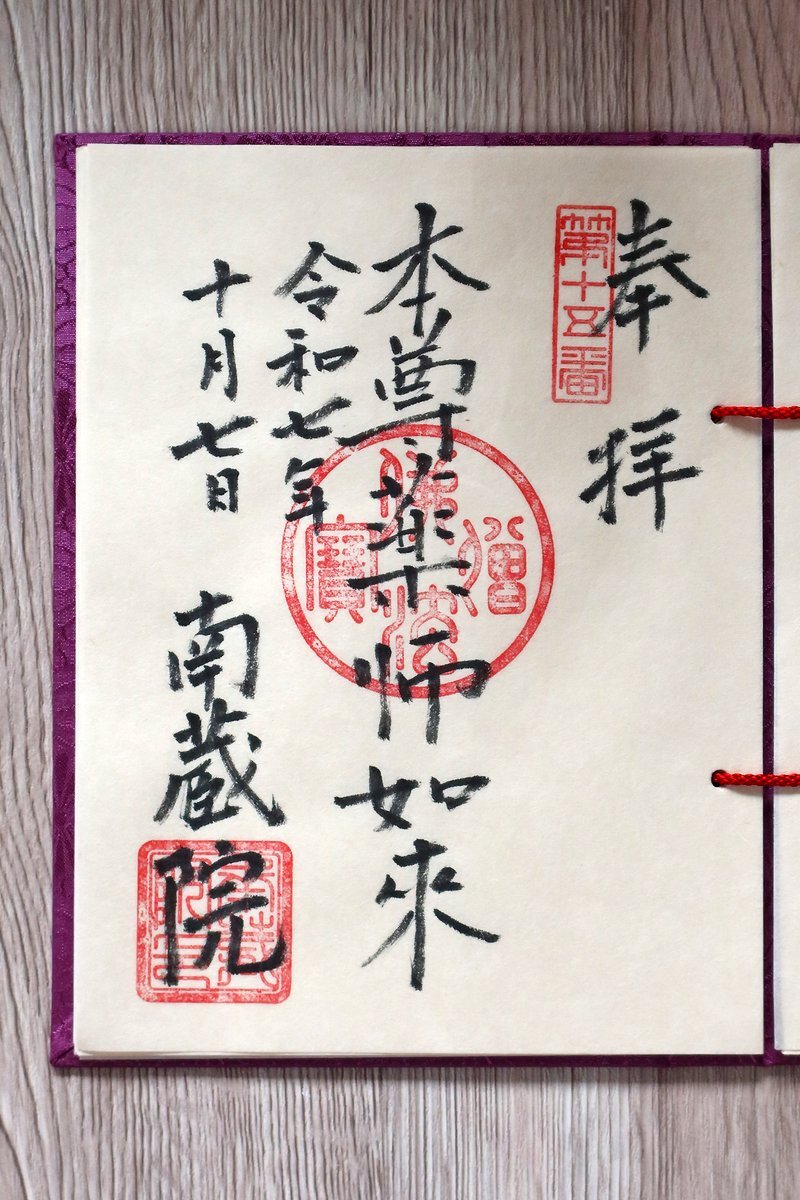 奉拝
第十五番
本尊薬師如來
佛法僧寶
令和七年
十月七日
南蔵院